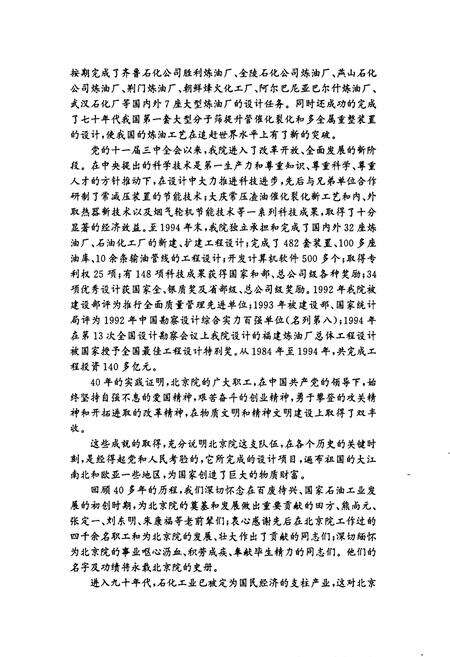 按期完成了齐鲁石化公司胜利炼油厂、金陵石化公司炼油厂、燕山石化
公司炼油厂、荆门炼油厂、朝鲜烽火化工厂、阿尔巴尼亚巴尔什炼油厂、
武汉石化厂等国内外7座大型炼油厂的设计任务。同时还成功的完成
了七十年代我国第一套大型分子筛提升管催化裂化和多金属重整装置
的设计,使我国的炼油工艺在追赶世界水平上有了新的突破。
党的十一届三中全会以来,我院进入了改革开放、全面发展的新阶
段。在中央提出的科学技术是第一生产力和尊重知识、尊重科学、尊重
人才的方针推动下,在设计中大力推进科技进步,先后与兄弟单位合作
研制了常减压装置的节能技术;大庆常压渣油催化裂化新工艺和内、外
取热器新技术以及烟气轮机节能技术等一系列科技成果,取得了十分
显著的经济效益。至1994年末,我院独立承担和完成了国内外32座炼
油厂、石油化工厂的新建、扩建工程设计;完成了482套装置、100多座
油库、10余条输油管线的工程设计;开发计算机软件500多个;取得专
利权25项;有148项科技成果获得国家和部、总公司级各种奖励;34
项优秀设计获国家金、银质奖及省部级、总公司级奖励。1992年我院被
建设部评为推行全面质量管理先进单位;1993年被建设部、国家统计
局评为1992年中国勘察设计综合实力百强单位(名列第八);1994年
在第13次全国设计勘察会议上我院设计的福建炼油厂总体工程设计
被国家授予全国最佳工程设计特别奖。从1984年至1994年,共完成工
程投资140多亿元。
40年的实践证明,北京院的广大职工,在中国共产党的领导下,始
终坚持自强不息的爱国精神,艰苦奋斗的创业精神,勇于攀登的攻关精
神和开拓进取的改革精神,在物质文明和精神文明建设上取得了双丰
收。
这些成就的取得,充分说明北京院这支队伍,在各个历史的关键时
刻,是经得起党和人民考验的,它所完成的设计项目,遍布祖国的大江
南北和欧亚一些地区,为国家创造了巨大的物质财富。
回顾40多年的历程,我们深切怀念在百废待兴、国家石油工业发
展的初创时期,为北京院的奠基和发展做出重要贡献的田方、熊尚元、
张定一、刘东明、朱康福等老前辈们;衷心感谢先后在北京院工作过的
四千余名职工和为北京院的发展、壮大作出了贡献的同志们;深切缅怀
为北京院的事业呕心沥血、积劳成疾、奉献毕生精力的同志们。他们的
名字及功绩将永载北京院的史册。
进入九十年代,石化工业已被定为国民经济的支柱产业,这对北京